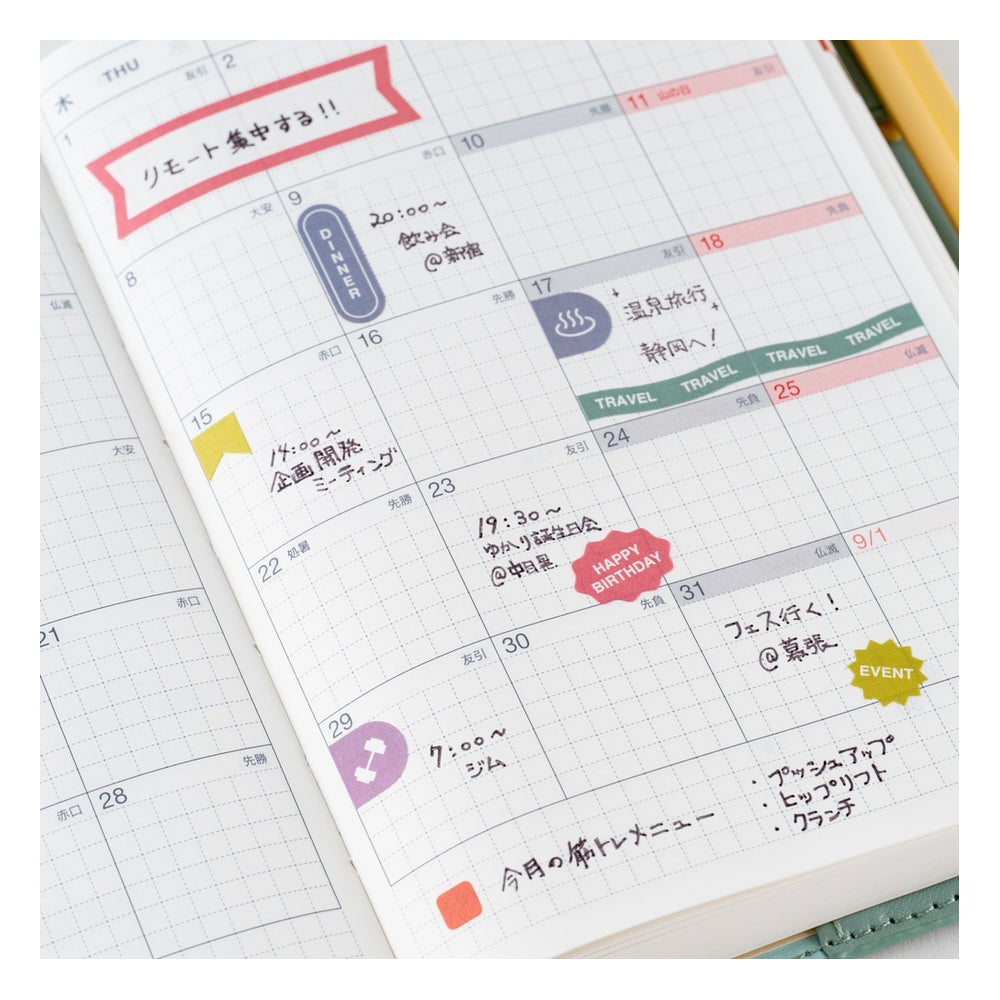 木 THU
1 友引
2
リモート集中する!!
8 大安
9 赤口
DINNER
20:00〜
飲み会
@新宿
10 先勝
11 山の日 友引
15 赤口
14:00〜
企画開発
ミーティング
16 先勝
17 友引
温泉旅行
静岡へ!
18 先負
TRAVEL TRAVEL TRAVEL TRAVEL
22 処暑 先勝
23 友引
19:30〜
ゆかり誕生日会
@中目黒
HAPPY
BIRTHDAY
24 先負
25 仏滅
29 友引
7:00〜
ジム
30 先負
31 仏滅
フェス行く!
@幕張
EVENT
9/1
今月の筋トレメニュー
・プッシュアップ
・ヒップリフト
・クランチ
仏滅
大安
21 赤口
赤口
28 先勝